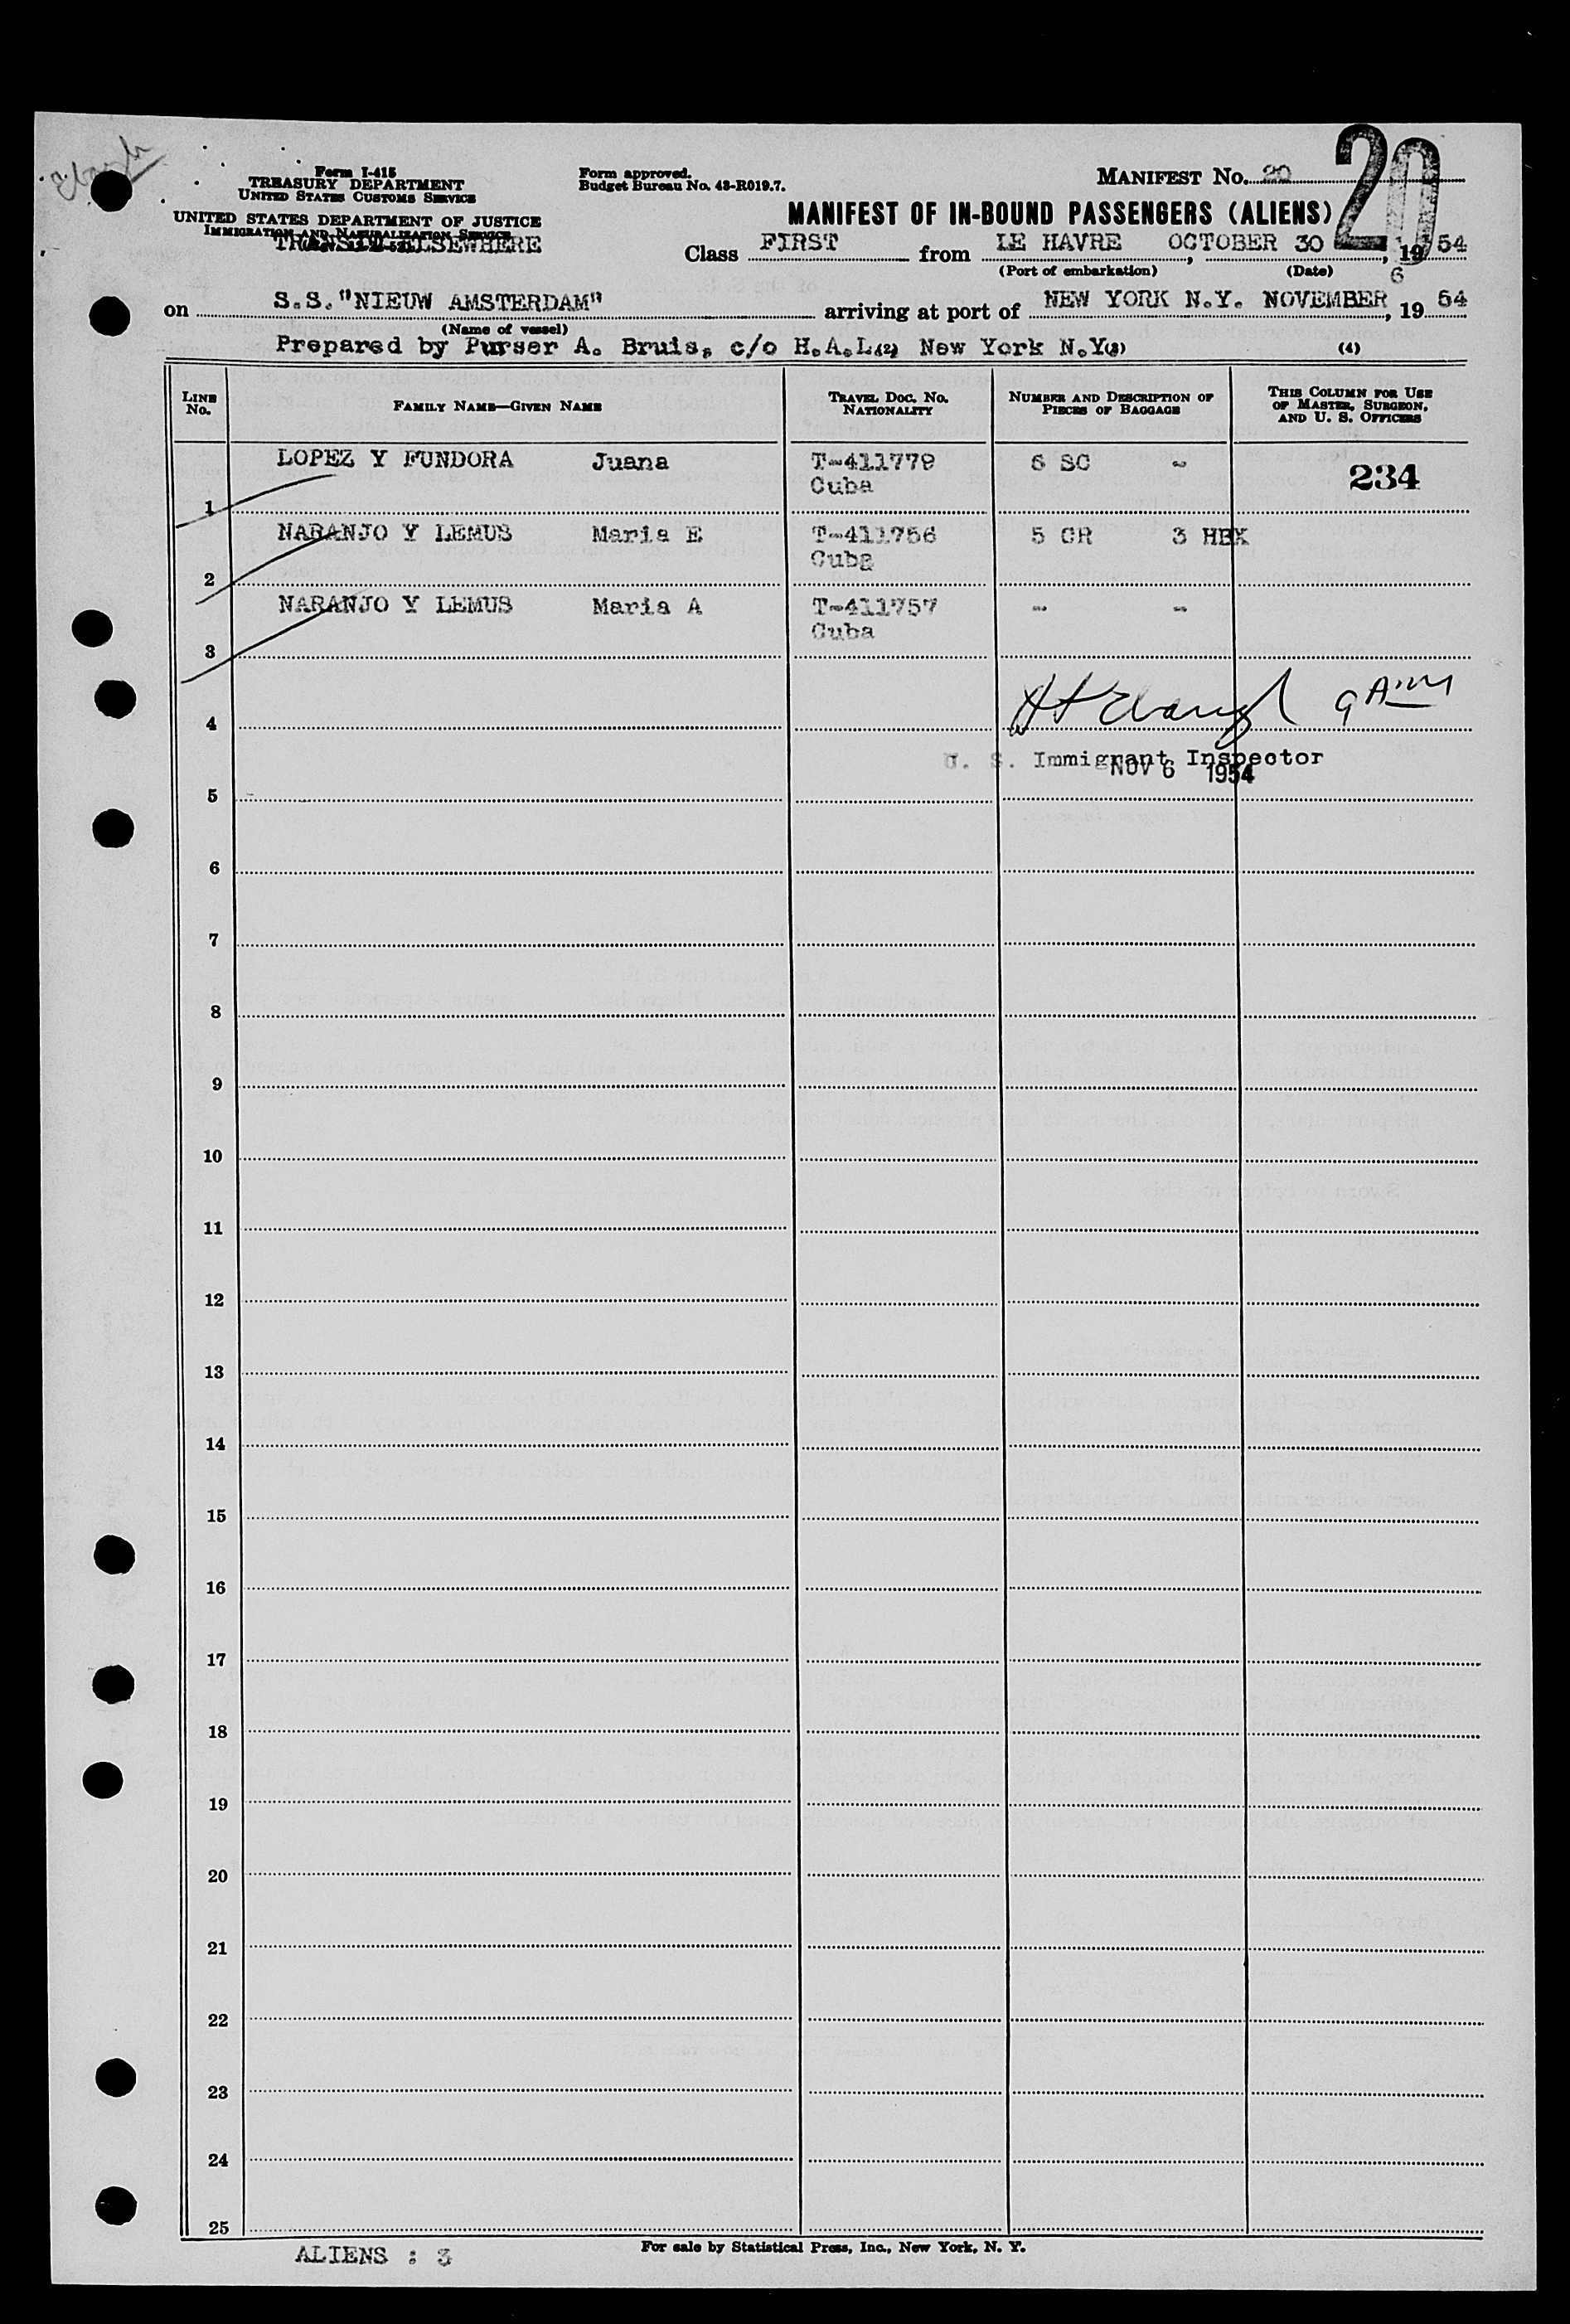 Form I-415
TREASURY DEPARTMENT
UNITED STATES CUSTOMS SERVICE
UNITED STATES DEPARTMENT OF JUSTICE
IMMIGRATION AND NATURALIZATION SERVICE
TRANSIT ELSEWHERE
Form approved.
Budget Bureau No. 43-R019.7.
MANIFEST No. 20
20
MANIFEST OF IN-BOUND PASSENGERS (ALIENS)
Class FIRST from LE HAVRE, OCTOBER 30, 1954
(Port of embarkation) (Date)
6
on S.S. "NIEUW AMSTERDAM" arriving at port of NEW YORK N.Y. NOVEMBER, 19 54
(Name of vessel)
Prepared by Purser A. Bruis, c/o H.A.L. (2) New York N.Y. (3) (4)
LINE No. FAMILY NAME—GIVEN NAME TRAVEL DOC. No. NATIONALITY NUMBER AND DESCRIPTION OF PIECES OF BAGGAGE THIS COLUMN FOR USE OF MASTER, SURGEON, AND U. S. OFFICERS
LOPEZ Y FUNDORA Juana T-411779 6 SC - 234
Cuba
1
NARANJO Y LEMUS Maria E T-411756 5 CR 3 HBX
Cuba
2
NARANJO Y LEMUS Maria A T-411757 - -
Cuba
3
4 9 AM
U. S. Immigrant Inspector
NOV 6 1954
5
6
7
8
9
10
11
12
13
14
15
16
17
18
19
20
21
22
23
24
25
ALIENS : 3
For sale by Statistical Press, Inc., New York, N. Y.